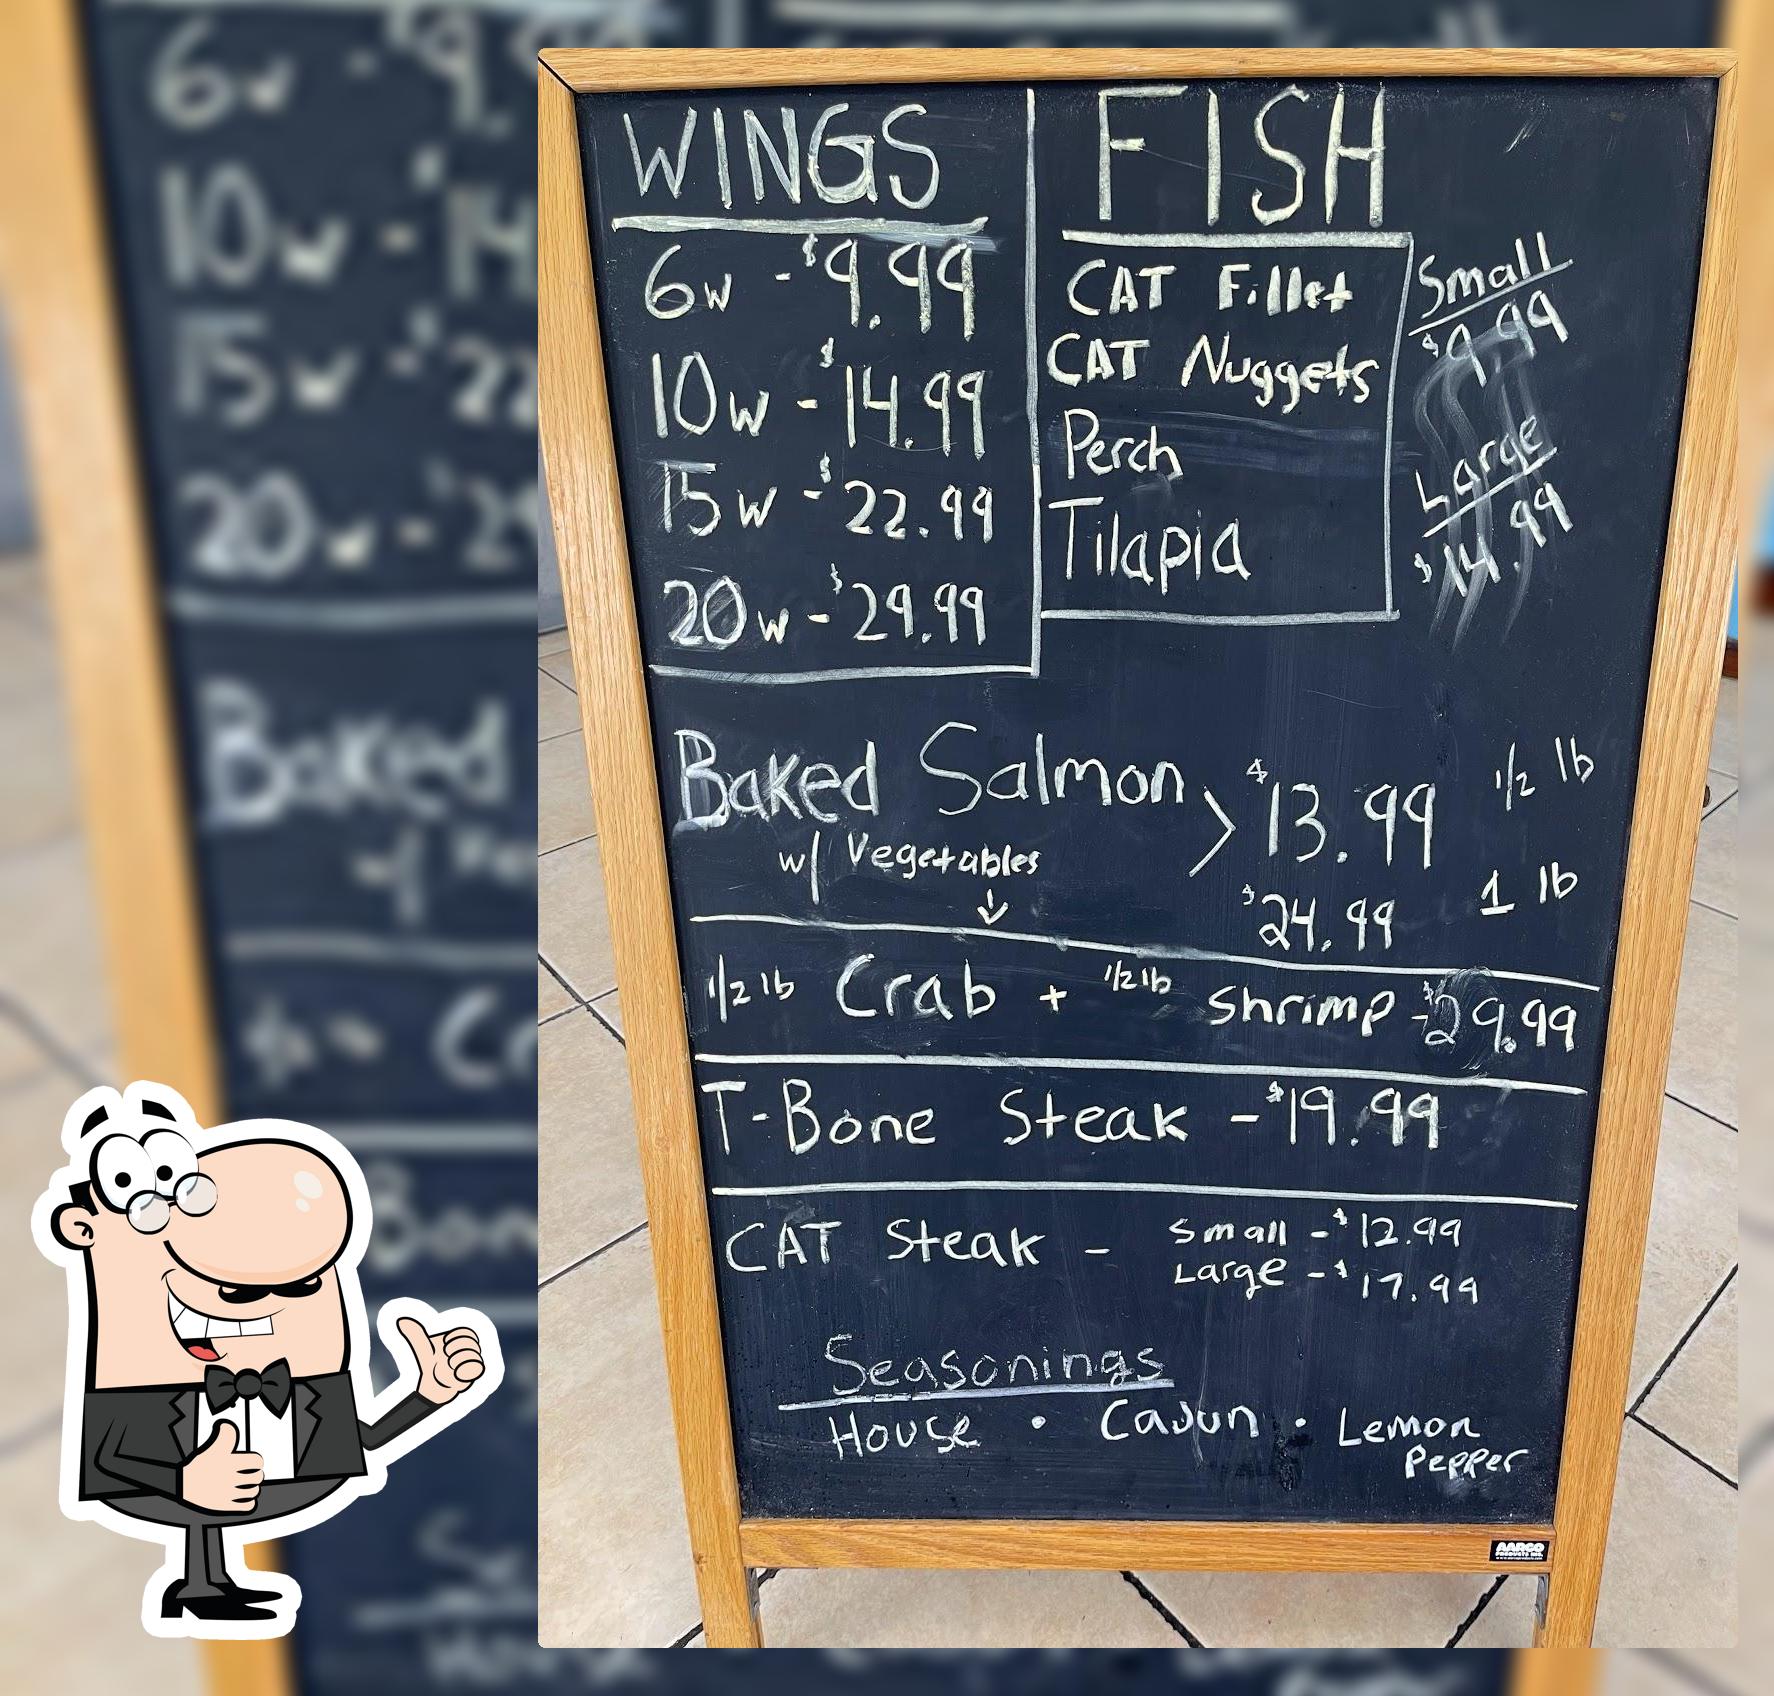 WINGS
6w - $9.99
10w - $14.99
15w - $22.99
20w - $29.99
FISH
CAT Fillet
CAT Nuggets
Perch
Tilapia
Small
$9.99
Large
$14.99
Baked Salmon > $13.99 1/2 lb
w/ Vegetables
↓
$24.99 1 lb
1/2 lb Crab + 1/2 lb Shrimp - $29.99
T-Bone Steak - $19.99
CAT Steak - Small - $12.99
Large - $17.99
Seasonings
House • Cajun • Lemon
Pepper
AARCO
PRODUCTS INC.
6w - $9.99
10w - $14
15w - $22
20w - $29
Baked
w/ Ve
Cr
Bon